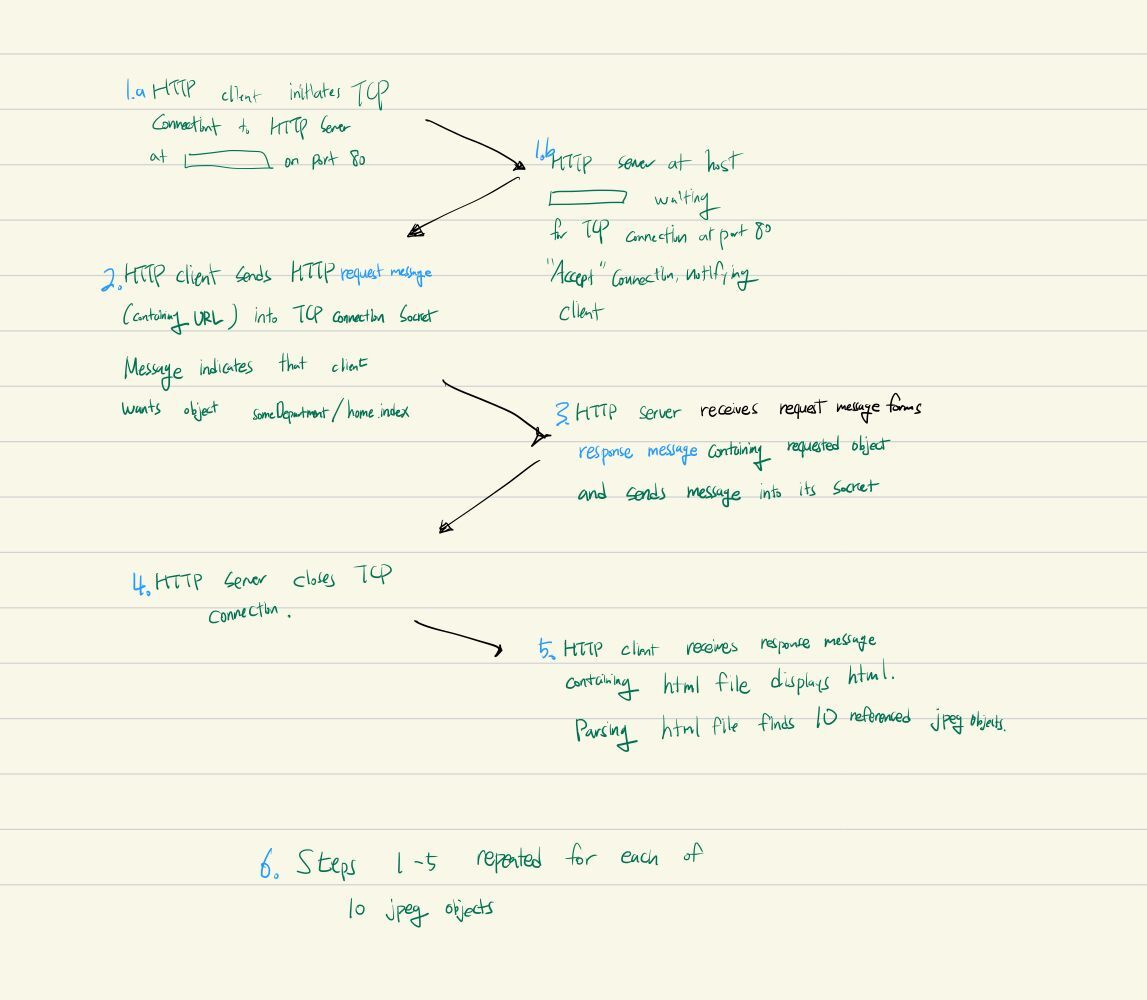 1.a HTTP client initiates TCP
Connectiont to HTTP Server
at on port 80
1.b HTTP server at host
waiting
for TCP connection at port 80
"Accept" connection, notifying
client
2. HTTP client sends HTTP request message
(containing URL) into TCP connection Socket
Message indicates that client
wants object someDepartment/home.index
3. HTTP server receives request message forms
response message containing requested object
and sends message into its socket
4. HTTP server closes TCP
connection.
5. HTTP client receives response message
containing html file displays html.
Parsing html file finds 10 referenced jpeg objects.
6. Steps 1-5 repeated for each of
10 jpeg objects